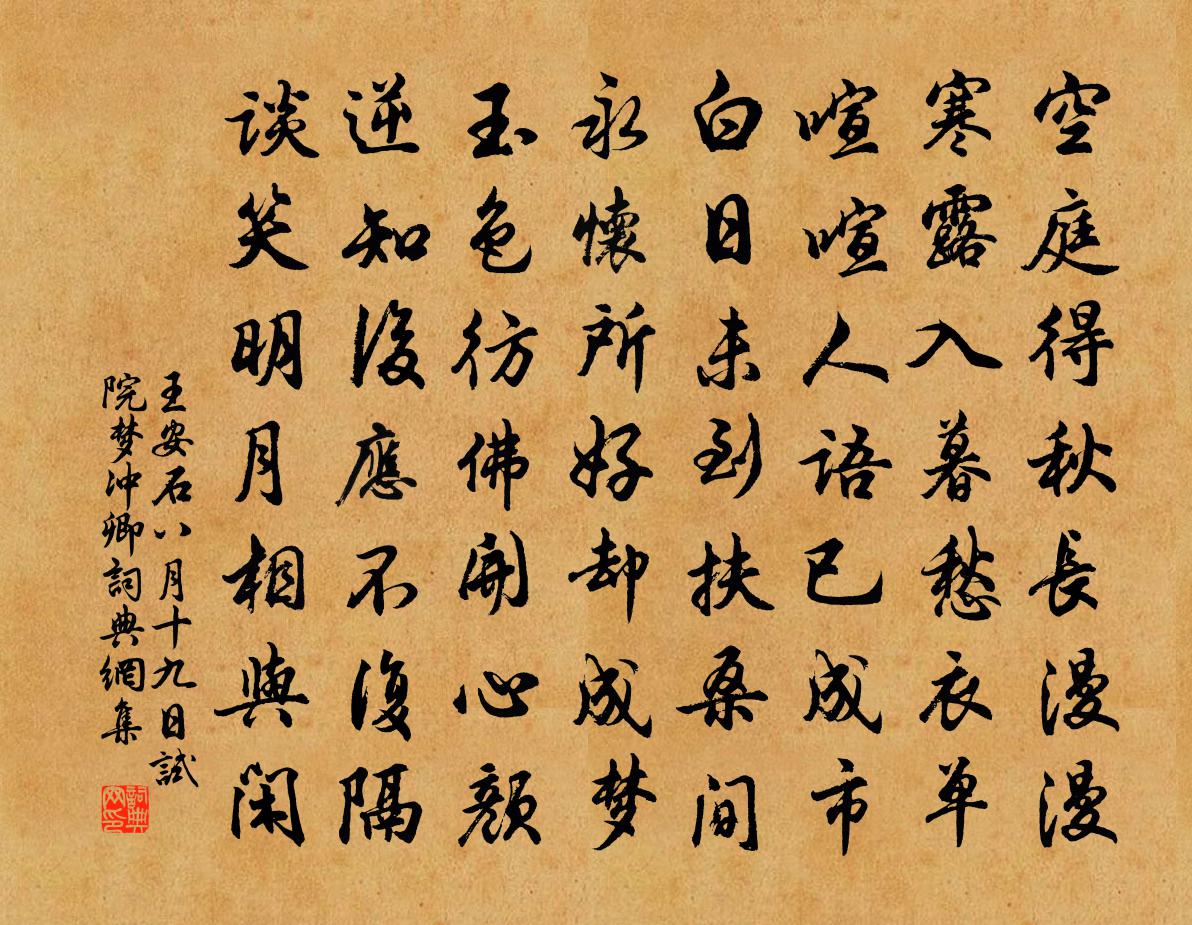 空庭得秋長漫漫
寒露入暮愁衣单
喧喧人語已成市
白日未到扶桑间
永懷所好却成梦
玉色彷佛開心顔
逆知後應不復隔
谈笑明月相與閑
王安石八月十九日試
院梦冲卿詞典網集
詞典网印